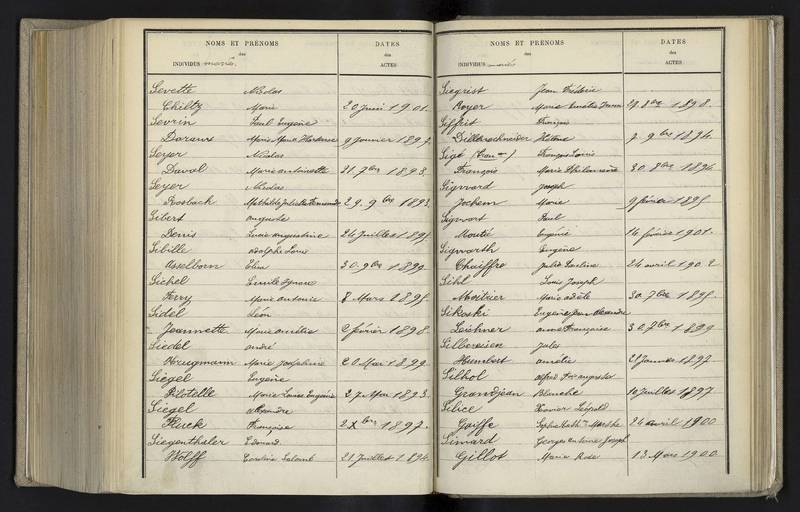 NOMS ET PRÉNOMS DATES
des des
INDIVIDUS mariés. ACTES
Sevette Nicolas
Chiltz Marie 20 Juin 1901.
Sevrin Paul Eugène
Daraux Marie Hortense 9 janvier 1892.
Seyer Nicolas
Daval Marie antoinette 21. 7bre 1893.
Seyer Nicolas
Rosbach Mathilde Juliette 29. 9bre 1893.
Sibert auguste
Denis Lucie augustine 24 Juillet 1895.
Sibille adolphe
Asselborn Elisa 30. 9bre 1899.
Sichel Emile
Ferry Marie antonie 8 Mars 1895.
Sidel Léon
Jeannette Marie amélie 2 février 1898.
Siedel andré
Krugmann Marie Joséphine 20 Mai 1899.
Siegel Eugène
Pilotelle Marie Louise Eugénie 27 Mai 1893.
Siegel alexandre
Fluck Françoise 2 Xbre 1897.
Siegenthaler Edouard
Wolff Caroline Salomé 21 Juillet 1894.
NOMS ET PRÉNOMS DATES
des des
INDIVIDUS mariés ACTES
Siegrist Jean Frédéric
Royer Marie 29. 8bre 1898.
Siffrit François
Dillenschneider Hélène 7. 9bre 1894.
Sigé François Louis
François Marie Philomène 30. 8bre 1894.
Sigward Joseph
Jochem Marie 9 février 1895.
Sigwart Paul
Mouté Eugénie 14 février 1901.
Sigwarth Eugène
Chaiffre Julie 24 avril 1902
Sihl Louis Joseph
Moitrier Marie adèle 30. 7bre 1895.
Sikoski Eugène Jean Alexandre
Leichner anne Françoise 30. 7bre 1899
Silbereisen Jules
Humbert amélie 21 Janvier 1892.
Silhol alfred auguste
Grandjean Blanche 10 Juillet 1897
Silice Xavier Léopold
Goiffe Sophie Marthe 24 avril 1900
Simard Georges antoine Joseph
Gillot Marie Rose 13 Mars 1900.